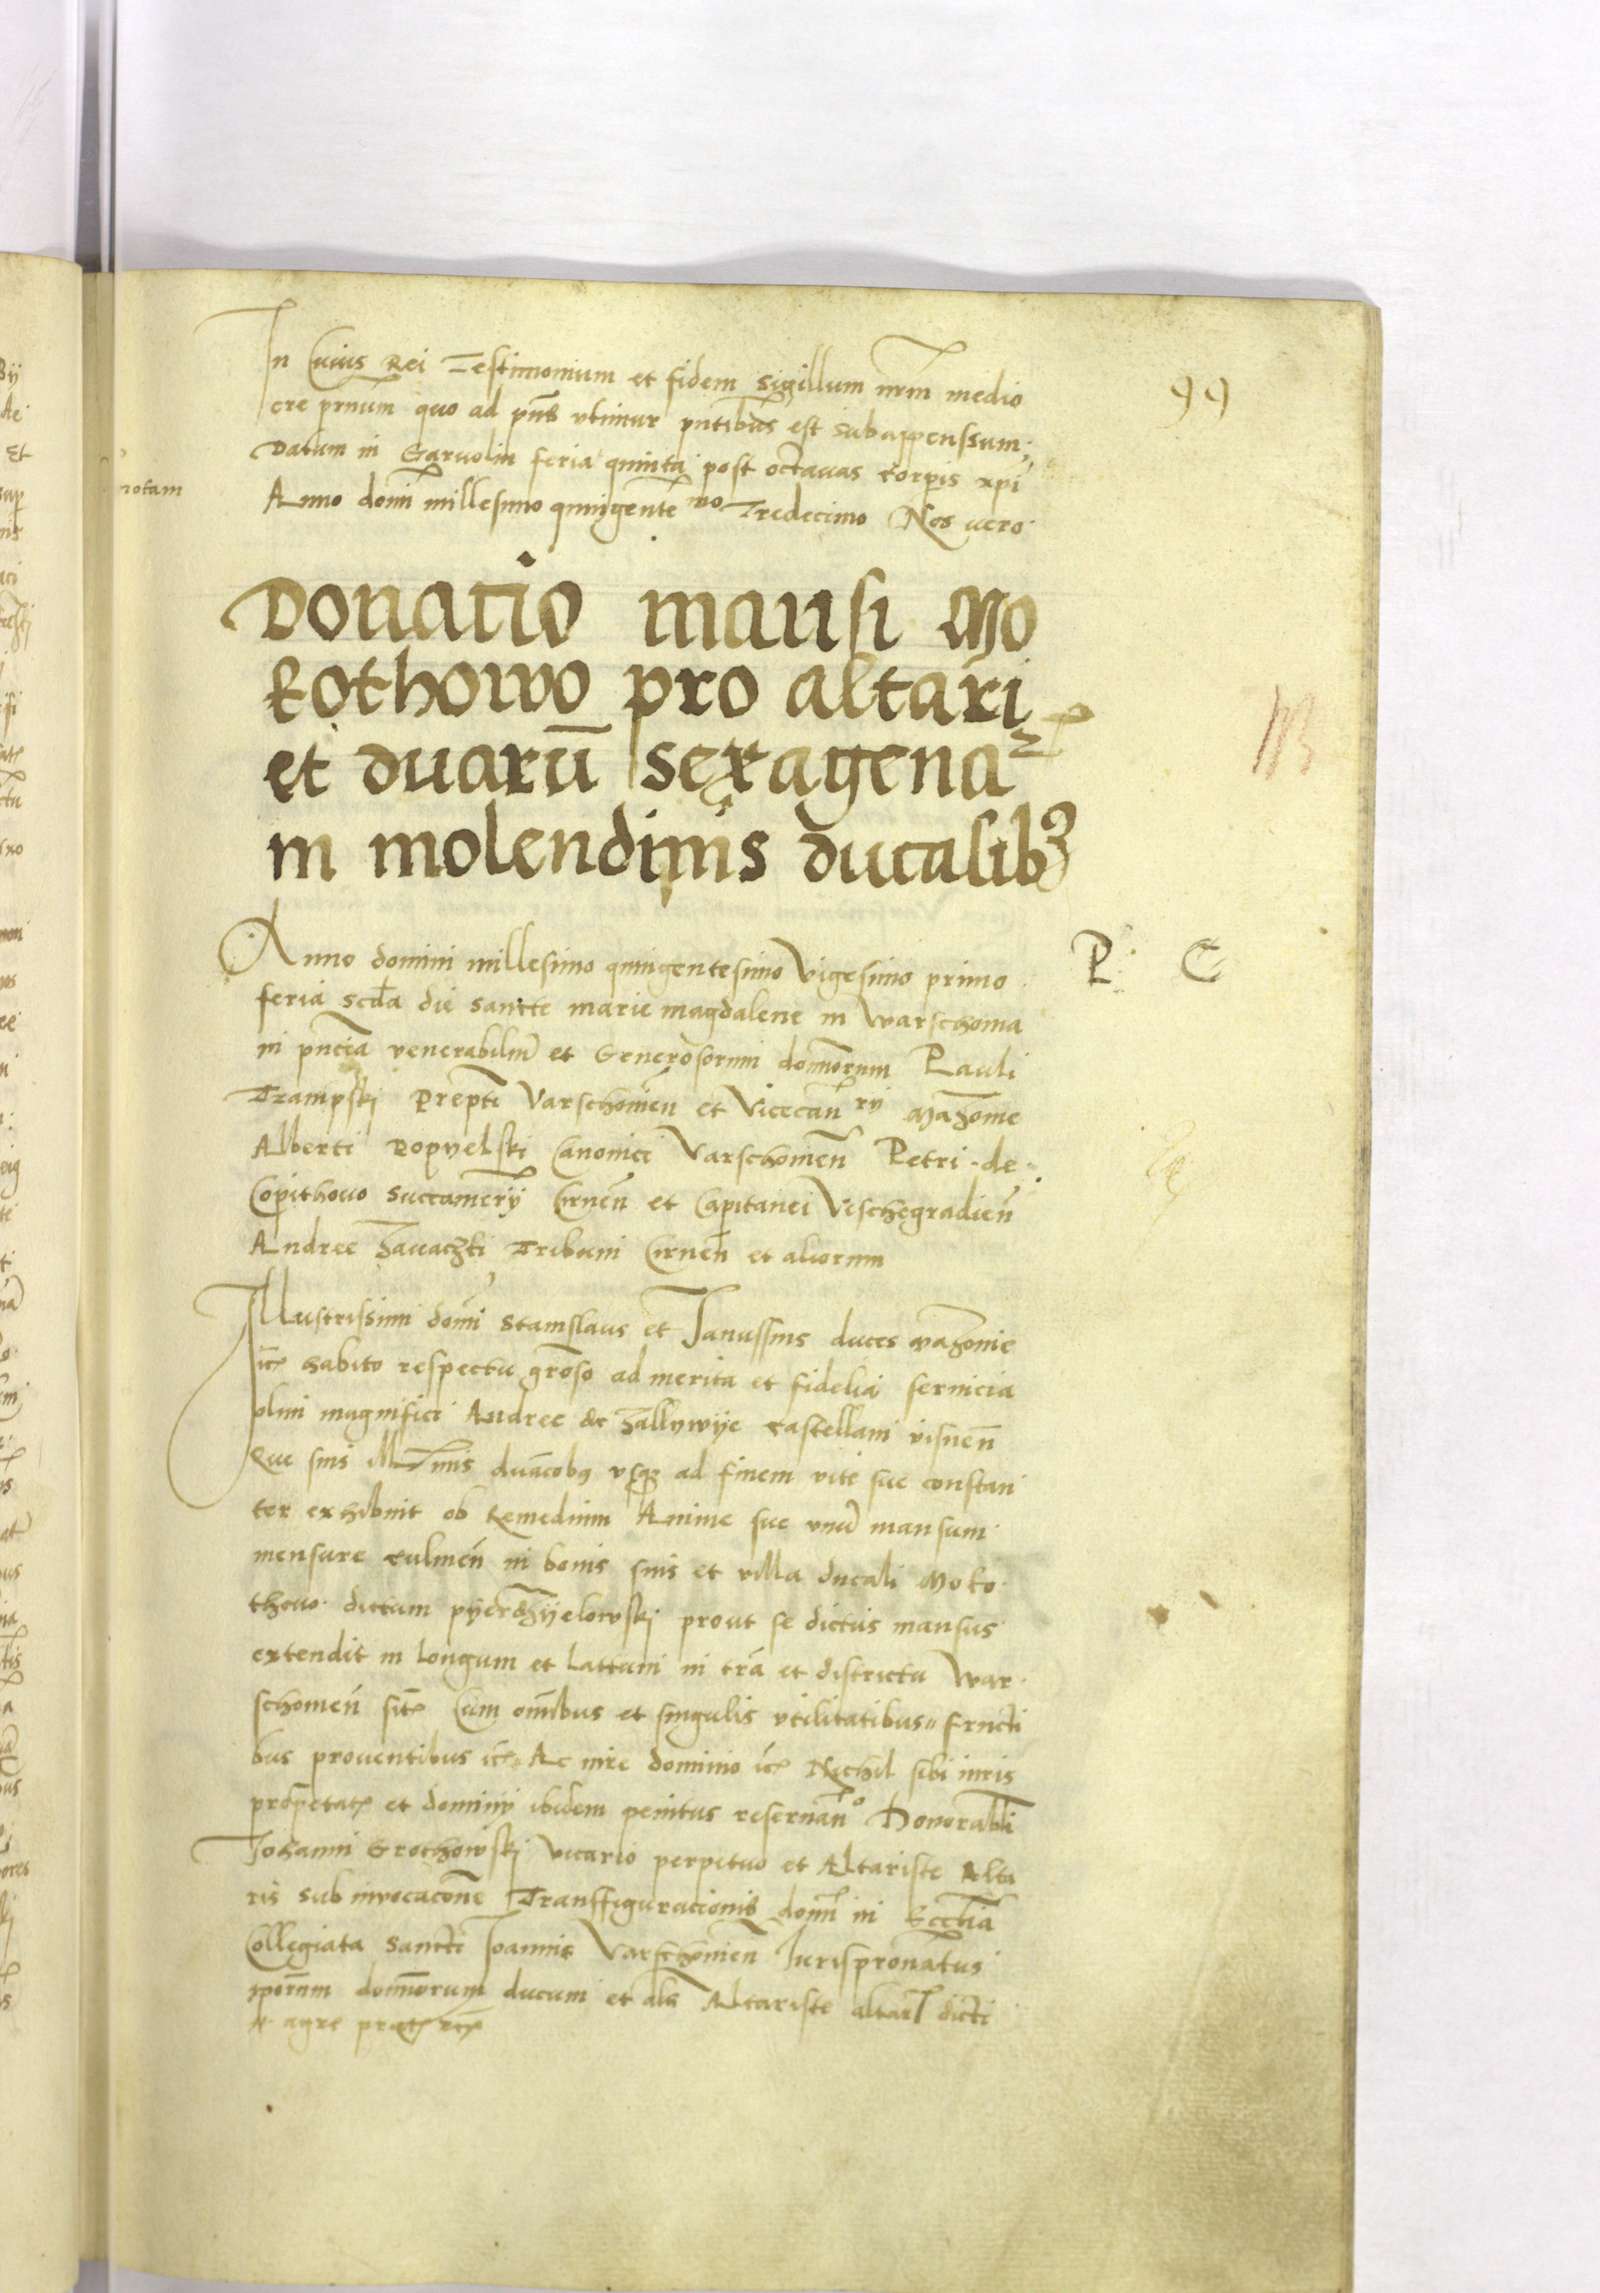 99
In Cuius Rei Testimonium et fidem Sigillum nrm̃ medio
cre prnum quo ad pñs vtimur pñtibus est subappenssum.
Datum in Garuolin feria quinta post octauas corpis xpi
Anno domi millesimo quingente mo Tredecimo Nos vero
Donatio mansi Mo
kothowo pro altari
et duarũ sexagena
in molendinis ducalibꝫ
P: C
Anno domini millesimo quingentesimo Vigesimo primo
feria scda die sancte marie magdalene in Warschouia
in pñcia venerabiliũ et Generosorum domnorum Pauli
Trampski Prepti Varschouień et Vicecan ry Mazouie
Alberti Popyelski Canonici Varschouień Petri de
Copithouo succamerij Cirneñ et Capitanei Vischegradień
Andree Zauaczki Tribuni Cirneñ et aliorum
Illustrissimi domi Stanislaus et Janussius duces Mazouie
ic̃ habito respectu groso ad merita et fidelia seruicia
olim magnifici Andree de Zallywye castellani visneñ
Que suis Illmis ducobꝫ vsqꝫ ad finem vite sue constan
ter exhibuit ob Remedium Anime sue vnũ mansum
mensure culmeñ in bonis suis et villa ducali Moko
thouo dictum pyerdzyelowskj prout se dictus mansus
extendit in longum et lattum in trã et districtu War
schouieñ sit̃ Cum omibus et singulis vtilitatibus fructi
bus prouentibus ic̃ Ac iure dominio ic̃ Nichil sibi iuris
proprietatꝭ et dominij ibidem penitus reseruañ Honorabli
Johanni Grochowskj vicario perpetuo et Altariste Alta
ris sub inuocacone Transffiguracionis domi in Ecclia
Collegiata Sancti Joannis Varschouieñ Jurispronatus
ipõrum domnorum ducum et als Altariste altaris dicti